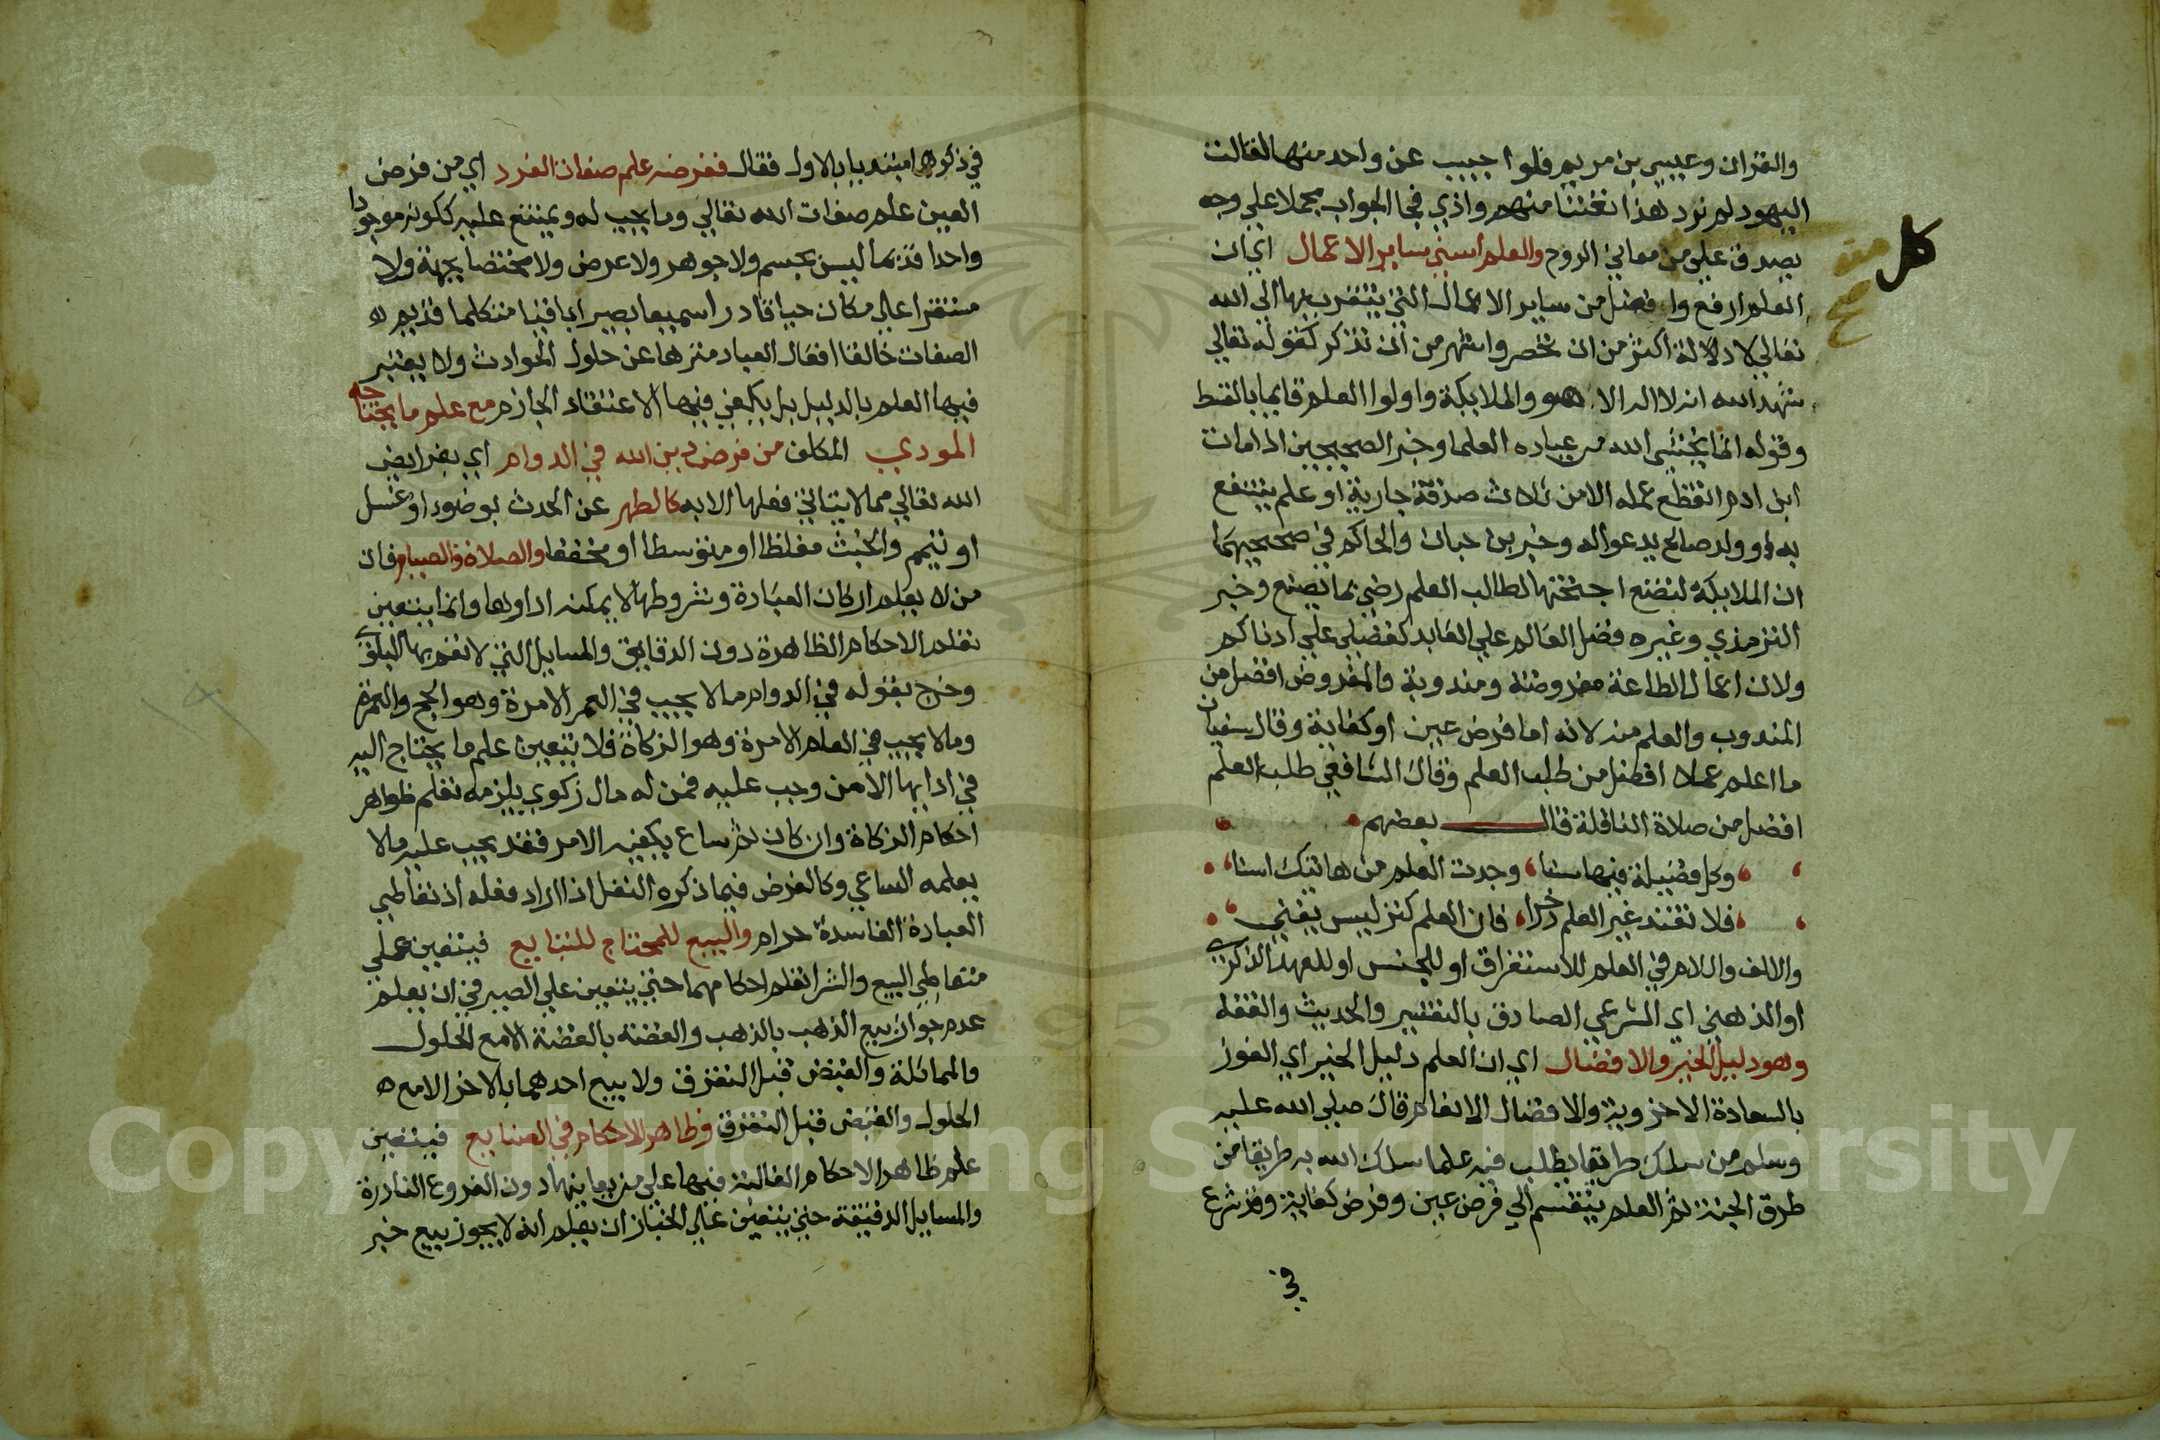 والقران وعيسي بن مريم فلو اجيب عن واحد منها لقالت
اليهود لم نرد هذا تعنتا منهم واذي فجا الجواب مجملا علي وجه
يصدق علي من معاني الروح والعلم اسني ساير الاعمال اي ان
العلم ارفع وافضل من ساير الاعمال التي يتقرب بها الي الله
تعالي لادلة اكثر من ان تحصر واشهر من ان تذكر كقوله تعالي
شهد الله انه لا اله الا هو والملايكة واولوا العلم قايما بالقسط
وقوله انما يخشي الله من عباده العلما وخبر الصحيحين اذا مات
ابن ادم انقطع عمله الا من ثلاث صدقة جارية او علم ينتفع
به او ولد صالح يدعوا له وخبر بن حبان والحاكم في صحيحيهما
ان الملايكة لتضع اجنحتها لطالب العلم رضي بما يصنع وخبر
الترمذي وغيره فضل العالم علي العابد كفضلي علي ادناكم
ولان اعمال الطاعة مفروضة ومندوبة والمفروض افضل من
المندوب والعلم منه لانه اما فرض عين او كفاية وقال سفيان
ما اعلم عملا افضل من طلب العلم وقال الشافعي طلب العلم
افضل من صلاة النافلة قال بعضهم
وكل فضيلة فيها سنا وجدت العلم من هاتيك اسنا
فلا تعتد غير العلم ذخرا فان العلم كنز ليس يفني
والالف واللام في العلم للاستغراق او للجنس او للعهد الذكري
او الذهني اي الشرعي الصادق بالتفسير والحديث والفقه
وهو دليل الخير والافضال اي ان العلم دليل الخير اي الفوز
بالسعادة الاخروية والافضال الانعام قال صلي الله عليه
وسلم من سلك طريقا يطلب فيه علما سلك الله به طريقا من
طرق الجنة ثم العلم ينقسم الي فرض عين وفرض كفاية وقد شرع
في
كل
في ذكرها مبتديا بالاول فقال ففرضه علم صفات الفرد اي من فرض
العين علم صفات الله تعالي وما يجب له ويمتنع عليه ككونه موجودا
واحدا قديما ليس بجسم ولا جوهر ولا عرض ولا مختصا بجهة ولا
مستقرا علي مكان حيا قادرا سميعا بصيرا باقيا متكلما قديم
الصفات خالقا افعال العباد منزها عن حلول الحوادث ولا يعتبر
فيها العلم بالدليل بل يكفي فيها الاعتقاد الجازم مع علم ما يحتاجه
المودي المكلف من فرض دين الله في الدوام اي بفرايض
الله تعالي مما لا يتاتي فعلها الا به كالطهر عن الحدث بوضوء او غسل
او تيمم والخبث مغلظا او متوسطا او مخففا والصلاة والصيام فان
من لا يعلم اركان العبادة وشروطها لا يمكنه اداوها وانما يتعين
تعلم الاحكام الظاهرة دون الدقايق والمسايل التي لا تعم بها البلوي
وخرج بقوله في الدوام ما لا يجب في العمر الا مرة وهو الحج والعمرة
وما لا يجب في العام الا مرة وهو الزكاة فلا يتعين علم ما يحتاج اليه
في ادايها الا من وجب عليه فمن له مال زكوي يلزمه تعلم ظواهر
احكام الزكاة وان كان ثم ساع يكفيه الامر فقد يجب عليه ما لا
يعلمه الساعي وكالفرض فيما ذكره النفل اذا اراد فعله اذ تعاطي
العبادة الفاسدة حرام والبيع للمحتاج للتبايع فيتعين علي
متعاطي البيع والشرا تعلم احكامهما حتي يتعين علي الصيرفي ان يعلم
عدم جواز بيع الذهب بالذهب والفضة بالفضة الا مع الحلول
والمماثلة والقبض قبل التفرق ولا بيع احدهما بالاخر الا مع
الحلول والقبض قبل التفرق وظاهر الاحكام في الصنايع فيتعين
علم ظاهر الاحكام الغالبة فيها علي من يعاينها دون الفروع النادرة
والمسايل الدقيقة حتي يتعين علي الخباز ان يعلم انه لا يجوز بيع خبز
Copyright © King Saud University